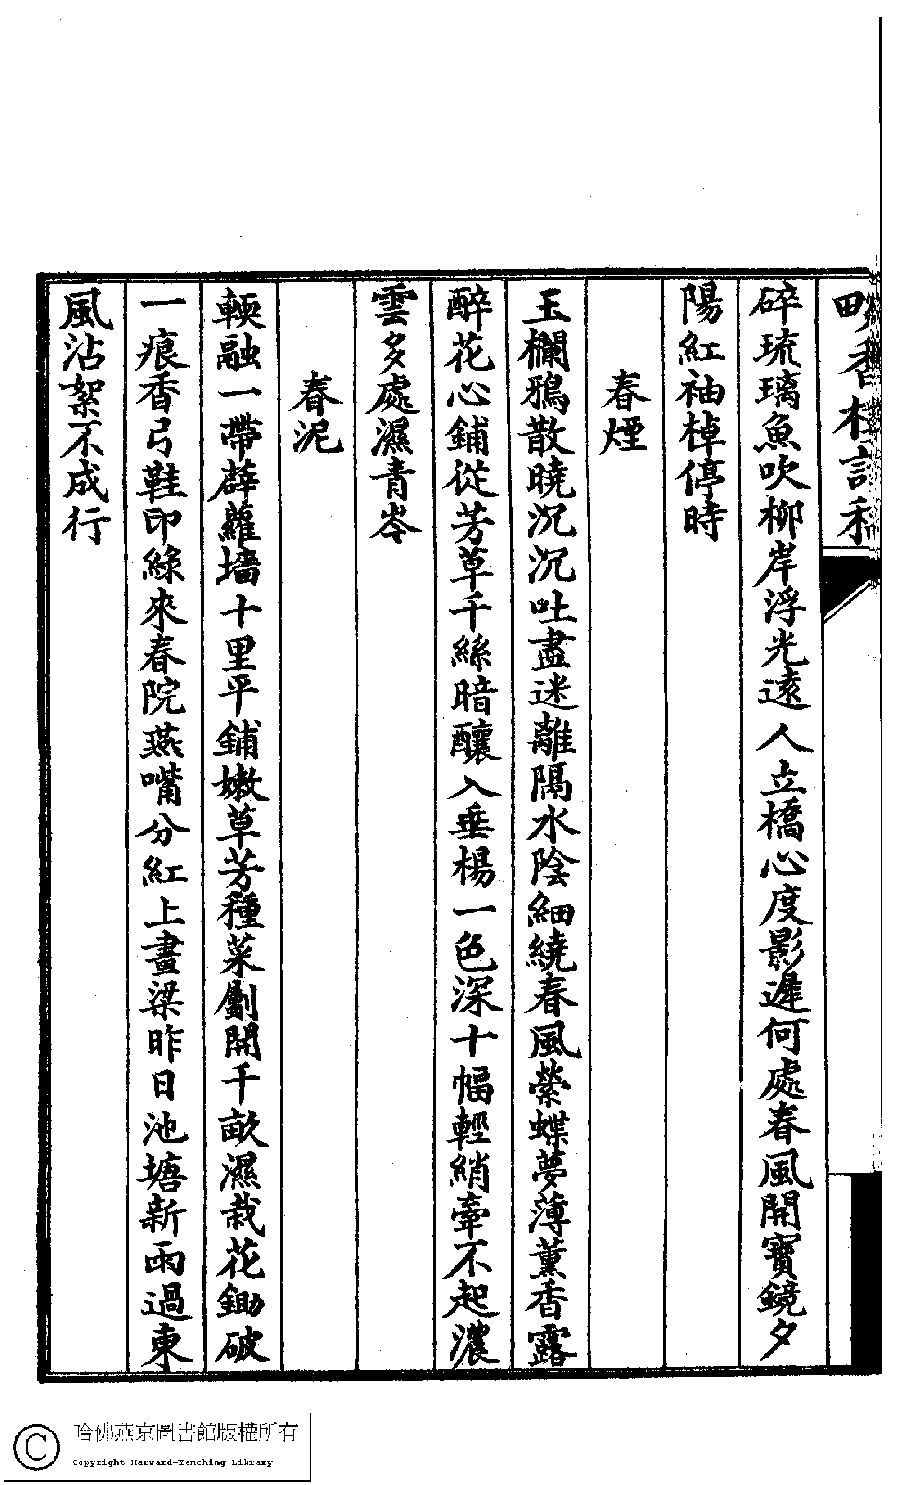 碎琉璃魚吹柳岸浮光遠人立橋心度影遲何處春風開寶鏡夕
陽紅袖棹停時
春煙
玉欄鴉散曉沉沉吐盡迷離隔水陰細繞春風縈蝶夢薄薰香露
醉花心鋪從芳草千絲暗釀入垂楊一色深十幅輕綃牽不起濃
雲多處濕青岑
春泥
輭融一帶薜蘿墻十里平鋪嫩草芳種菜劚開千畝濕栽花鋤破
一痕香弓鞋印綠來春院燕嘴分紅上畫梁昨日池塘新雨過東
風沾絮不成行
哈佛燕京圖書館版權所有
Copyright Harvard-Yenching Library